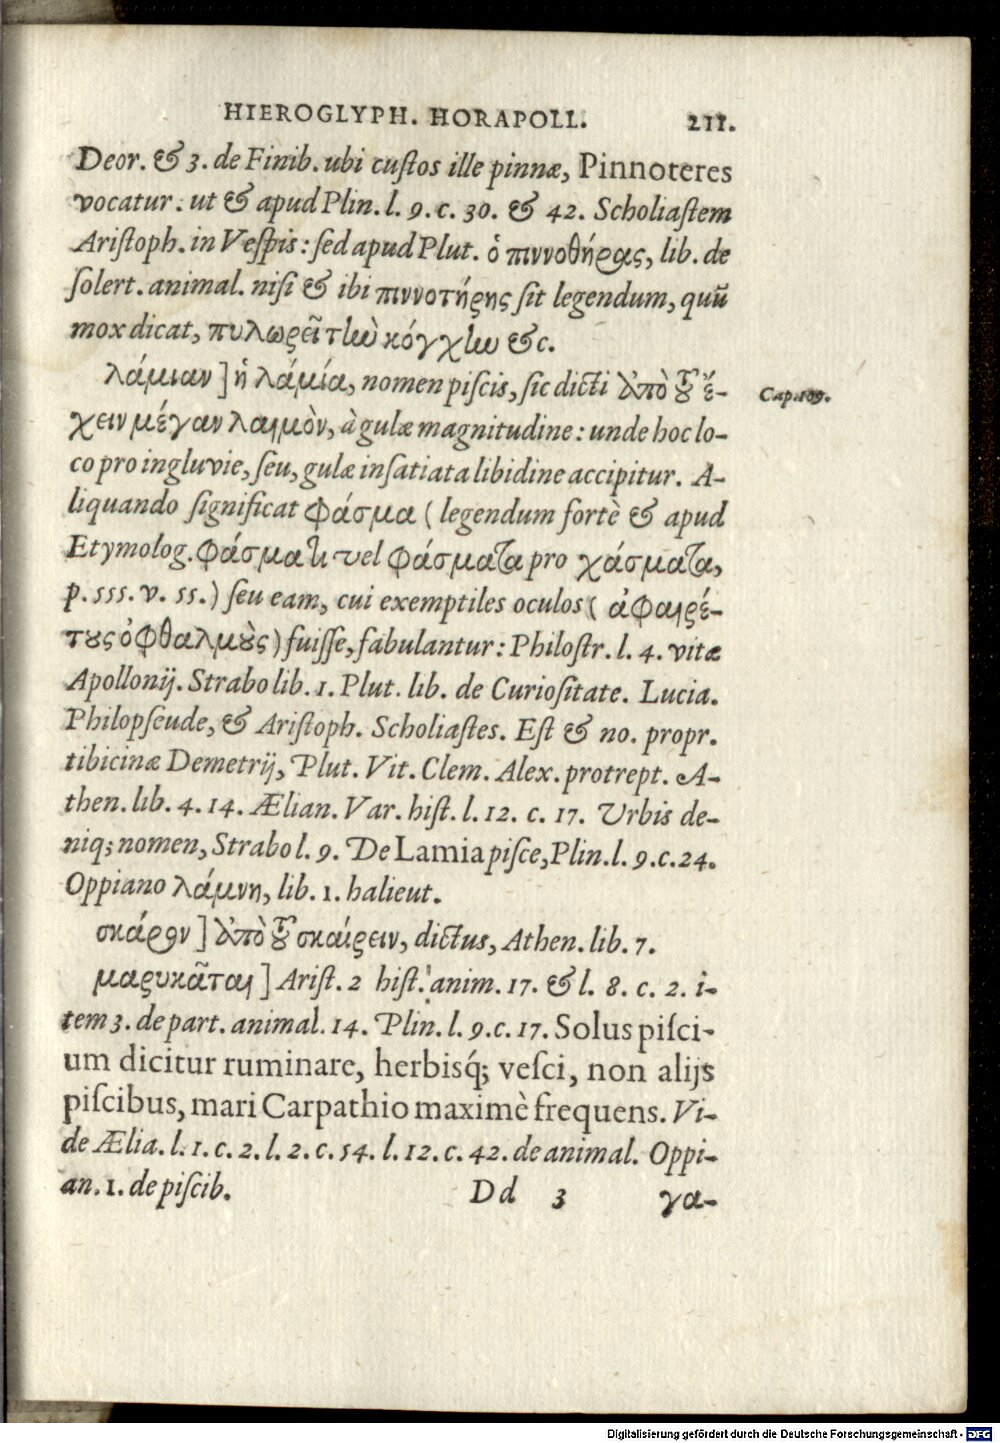 HIEROGLYPH. HORAPOLL. 211.
Deor. & 3. de Finib. ubi cuſtos ille pinnæ, Pinnoteres
vocatur. ut & apud Plin. l. 9. c. 30. & 42. Scholiaſtem
Ariſtoph. in Veſpis: ſed apud Plut. ὁ πιννοθήρας, lib. de
ſolert. animal. niſi & ibi πιννοτήρης ſit legendum, quū
mox dicat, πυλωρεῖ τὴν κόγχην &c.
λάμιαν] ἡ λάμία, nomen piſcis, ſic dicti ἀπὸ τοῦ ἔ-
Cap. 109.
χειν μέγαν λαιμὸν, à gulæ magnitudine: unde hoc lo-
co pro ingluvie, ſeu, gulæ inſatiata libidine accipitur. A-
liquando ſignificat φάσμα (legendum fortè & apud
Etymolog. φάσματι vel φάσματα pro χάσματα,
p. 555. v. 55.) ſeu eam, cui exemptiles oculos (ἀφαιρέ-
τους ὀφθαλμοὺς) fuiſſe, fabulantur: Philoſtr. l. 4. vitæ
Apollonij. Strabo lib. 1. Plut. lib. de Curioſitate. Lucia.
Philopſeude, & Ariſtoph. Scholiaſtes. Eſt & no. propr.
tibicinæ Demetrij, Plut. Vit. Clem. Alex. protrept. A-
then. lib. 4. 14. Ælian. Var. hiſt. l. 12. c. 17. Urbis de-
niq; nomen, Strabo l. 9. De Lamia piſce, Plin. l. 9. c. 24.
Oppiano λάμνη, lib. 1. halieut.
σκάρον] ἀπὸ τοῦ σκαίρειν, dictus, Athen. lib. 7.
μαρυκᾶται] Ariſt. 2 hiſt. anim. 17. & l. 8. c. 2. i-
tem 3. de part. animal. 14. Plin. l. 9. c. 17. Solus piſci-
um dicitur ruminare, herbisq́; veſci, non alijs
piſcibus, mari Carpathio maximè frequens. Vi-
de Ælia. l. 1. c. 2. l. 2. c. 54. l. 12. c. 42. de animal. Oppi-
an. 1. de piſcib.
Dd 3 γα-
Digitalisierung gefördert durch die Deutsche Forschungsgemeinschaft - DFG